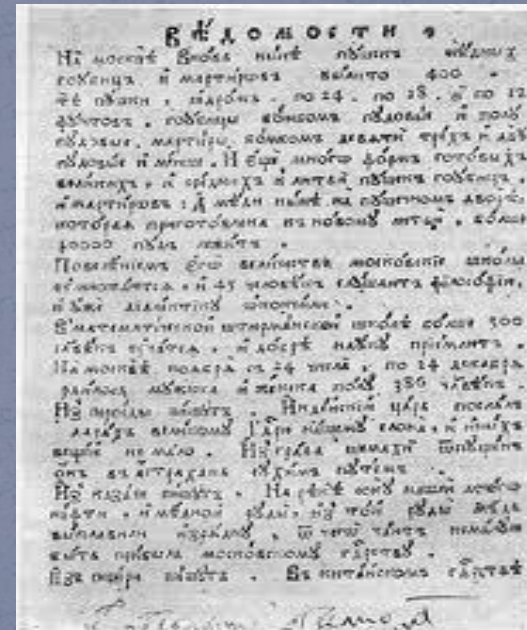 ВѢДОМОСТИ.
На москвѣ вновь нынѣ пушекъ мѣдныхъ
гоубицъ и мартировъ вылито 400.
тѣ пушки, ядромъ, по 24. по 18. и по 12
фунтовъ. гоубицы бомбомъ пудовыя и полу
пудовыя. мартиры бомбомъ девяти трехъ и двѣ
пудовыя и менше. И еще много формъ готовыхъ
великихъ, и среднихъ к литью пушекъ гоубицъ,
и мартировъ: А мѣди нынѣ на пушечномъ дворѣ,
которая приготовлена къ новому литью, болше
40000 пудъ лежитъ.
Повелѣніемъ его величества московскіе школы
умножаются, и 45 человѣкъ слушаютъ философію,
и уже діалектику окончили.
В математической штюрманской школѣ болше 300
человѣкъ учатся, и добрѣ науку пріемлютъ.
На москвѣ ноября съ 24 числа, по 24 декабря
родилося мужеска и женска полу 386 человѣкъ.
Изъ персиды пишутъ. Индѣйскій царь послалъ
въ дарахъ великому Гдрю нашему слона, и иныхъ
вещей не мало. Изъ града шемахи ѿпущенъ
онъ въ астрахань сухимъ путемъ.
Изъ казани пишутъ. На рѣкѣ соку нашли много
нефти, и мѣдной руды, изъ той руды мѣдь
выплавили изрядну, ѿ чего чаютъ немалую
быть прибыль московскому гдрству.
Изъ сибири пишутъ. Въ китайскомъ гдрствѣ